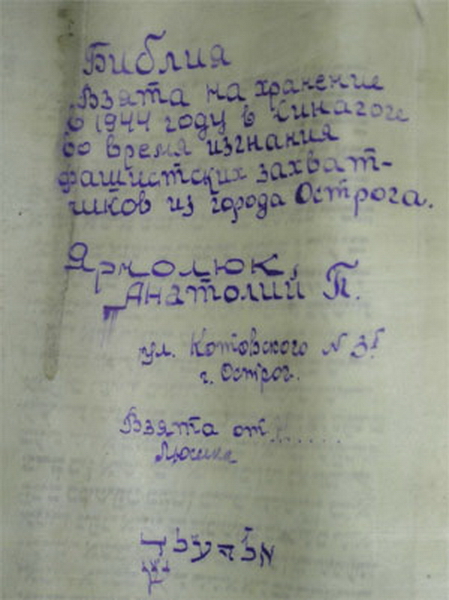 Библия
Взята на хранение
в 1944 году в Синагоге
во время изгнания
фашистских захват-
чиков из города Острога.
Ярмолюк
Анатолий П.
ул. Котовского N
г. Острог.
Взята от